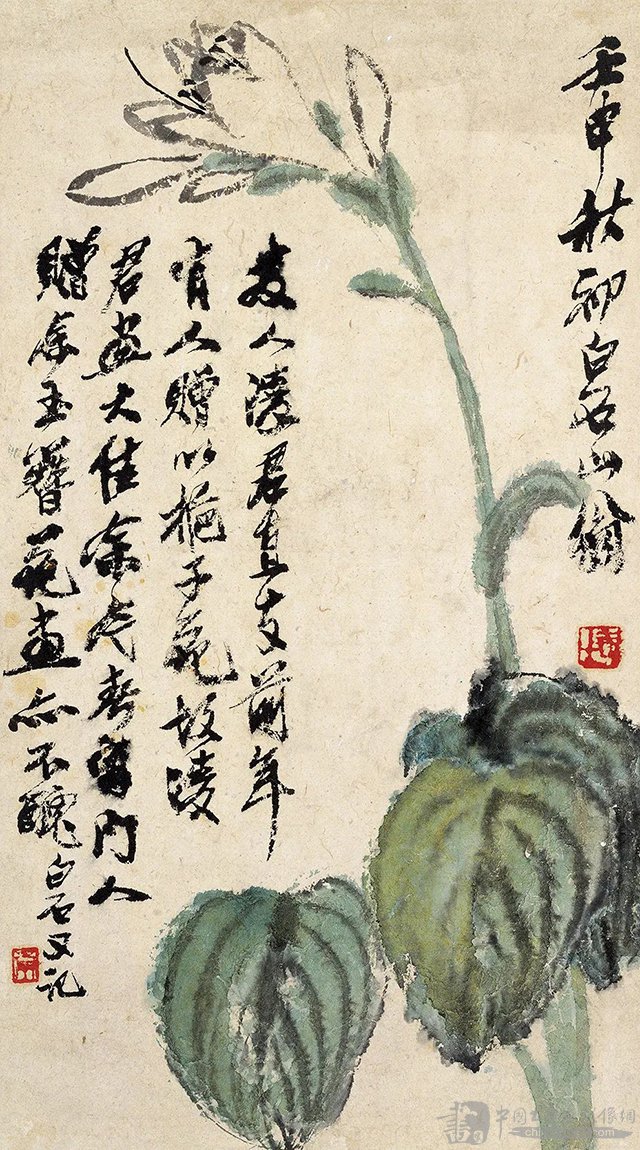 壬申秋初白石山翁
友人凌君直支前年
有人贈以梔子花故凌
君畫大佳余春門人
贈余玉簪花畫亦不醜白石又記